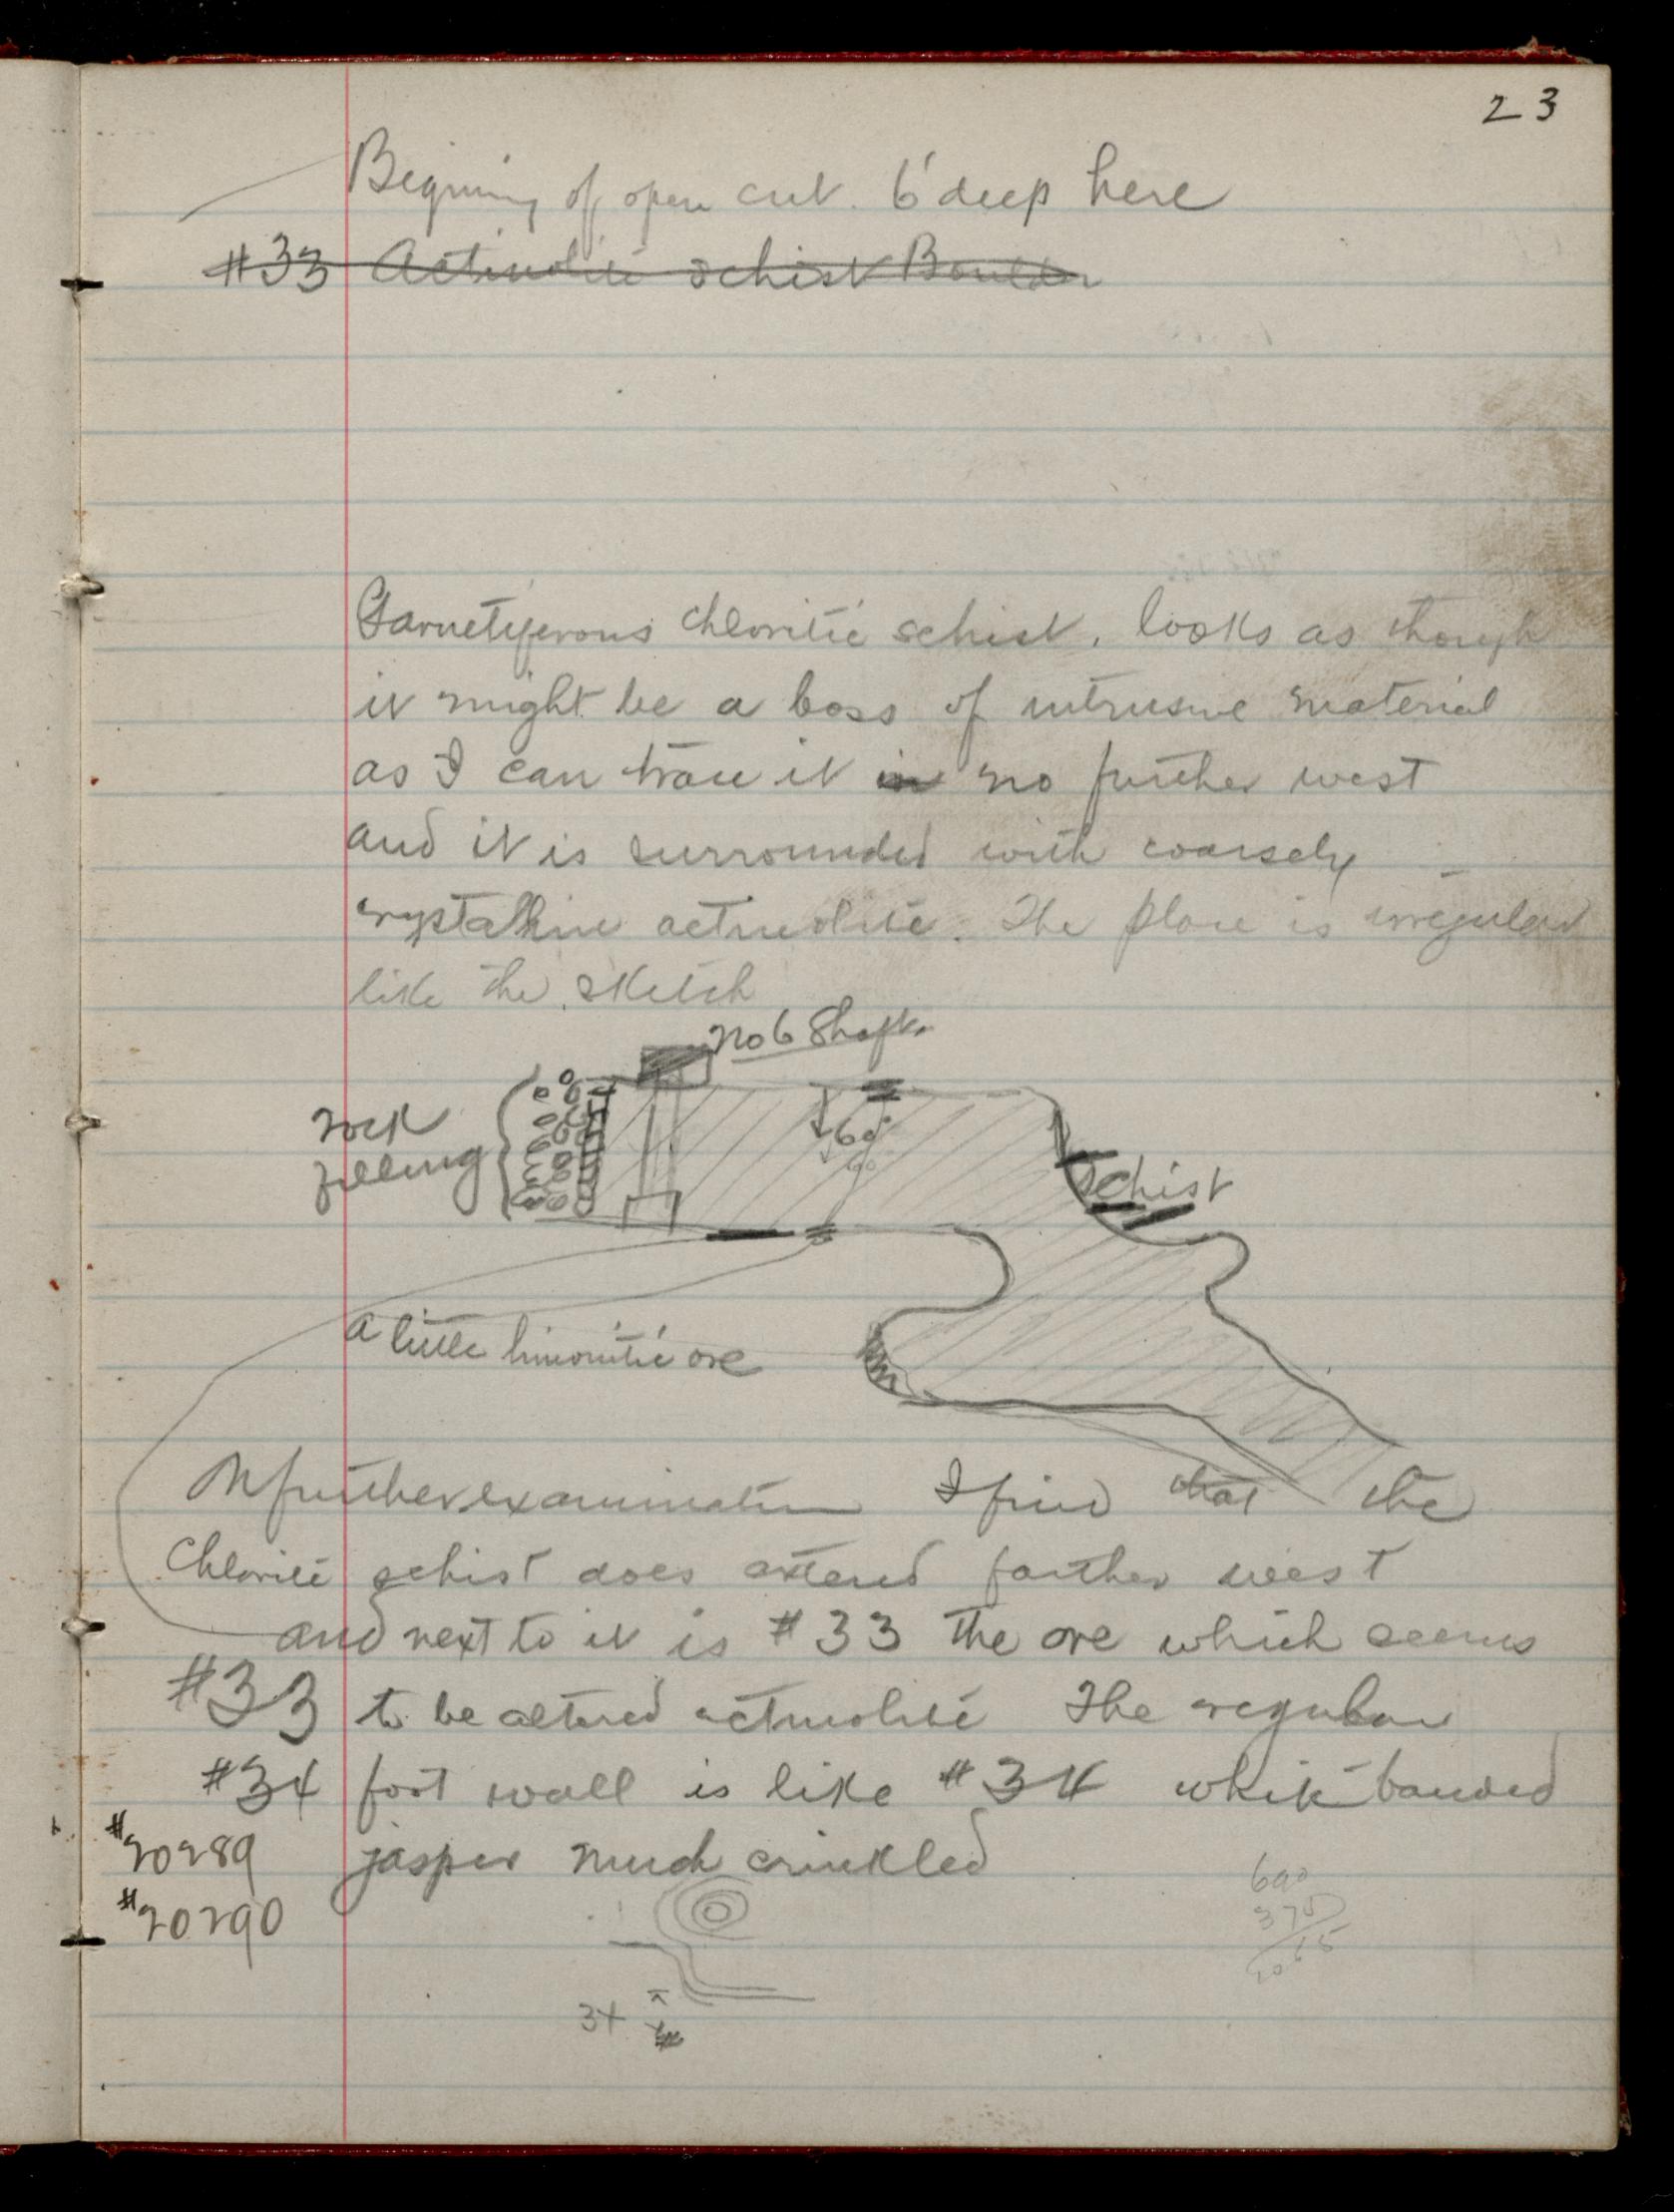 23
Begining of open cut. 6' deep here
#33 Actinolite schist Boulder
Garnetiferous chloritic schist. looks as though
it might be a boss of intrusive material
as I can trace it in no further west
and it is surrounded with coarsely
crystalline actinolite. The place is irregular
like the sketch
No 6 Shaft.
rock
filling
60°
Schist
a little limonitic ore
On further examination I find that the
Chlorite schist does extend farther west
and next to it is #33 the ore which seems
#33 to be altered actinolite The regular
#34 foot wall is like #34 white banded
#20289 jasper much crinkled
#20290
690
375
1065
34